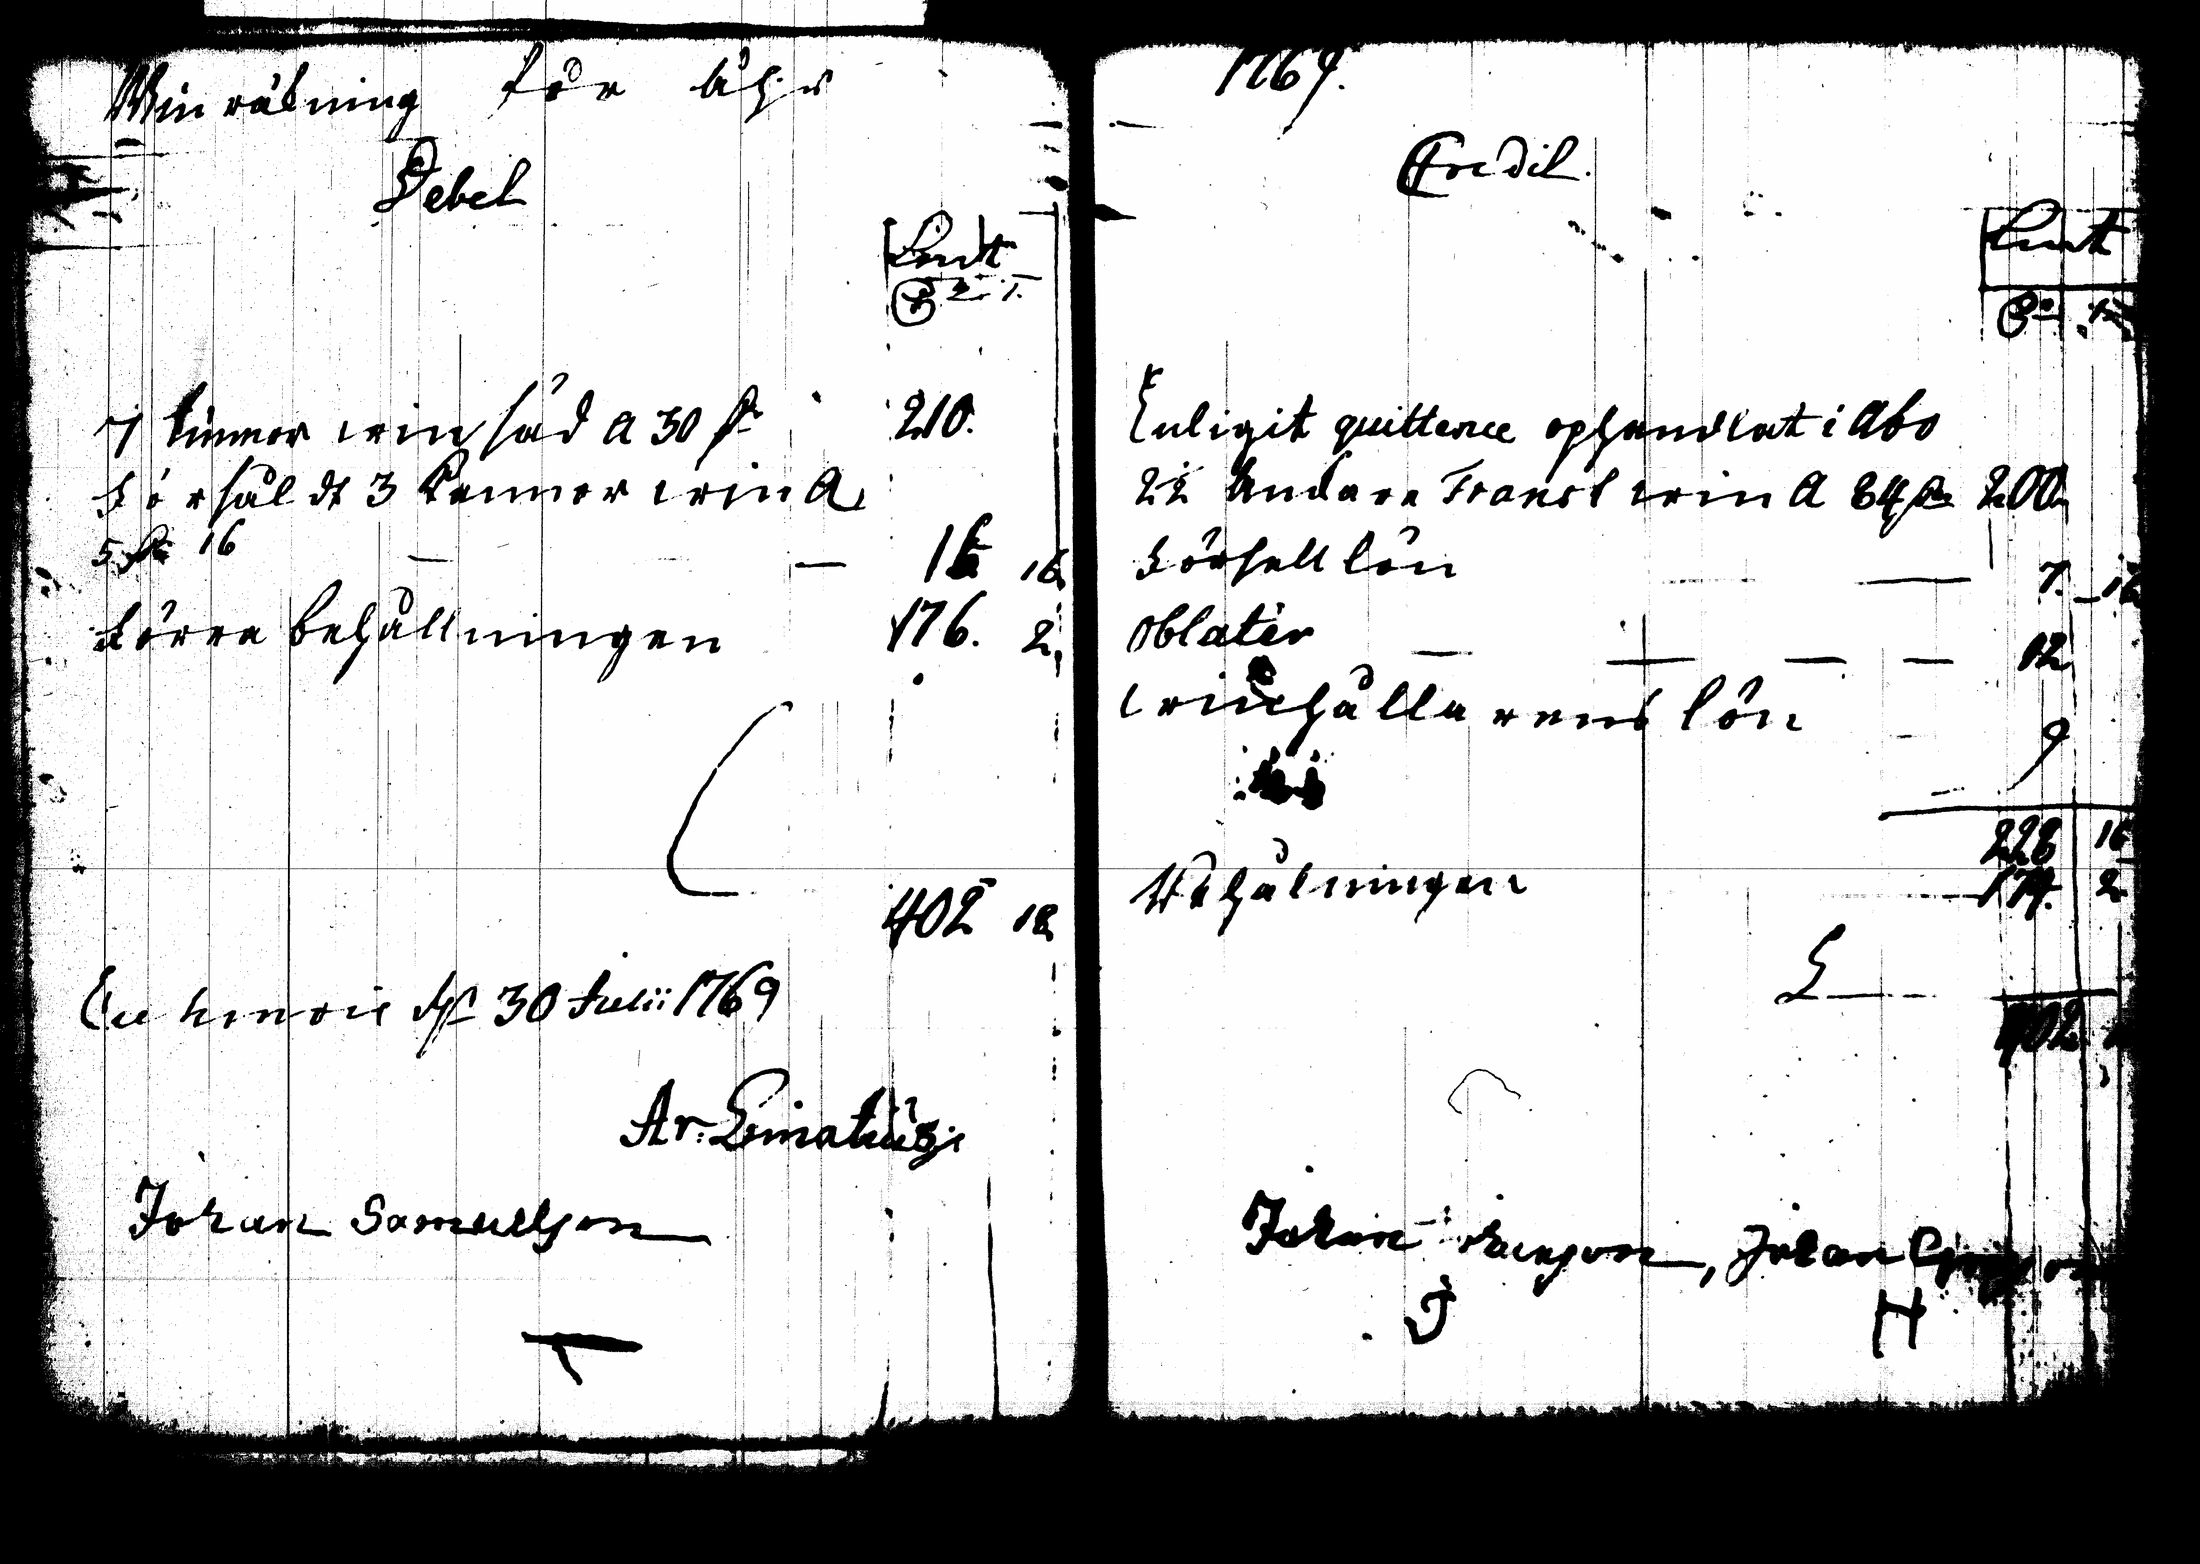 Win räkning för åhr
Debet
Kmt
D S.
7 tunnor win säd a 30 dr 210.
försåldt 3 kannor win a
5 dr 16 — — 16 16
förra behållningen 176. 2.
402 18
d. 30 Julii 1769
Johan Samuelsson
1769.
Credit.
Kmt
Enligit quittence ophandlat i Abo
22 kandare Franst win a 84 dr 200
Försell lön — — 7. 16
Oblater — — — — 12
winhållarens lön — 9
228 16
Behålningen 174. 2
S
402
Johan, Johan
J H